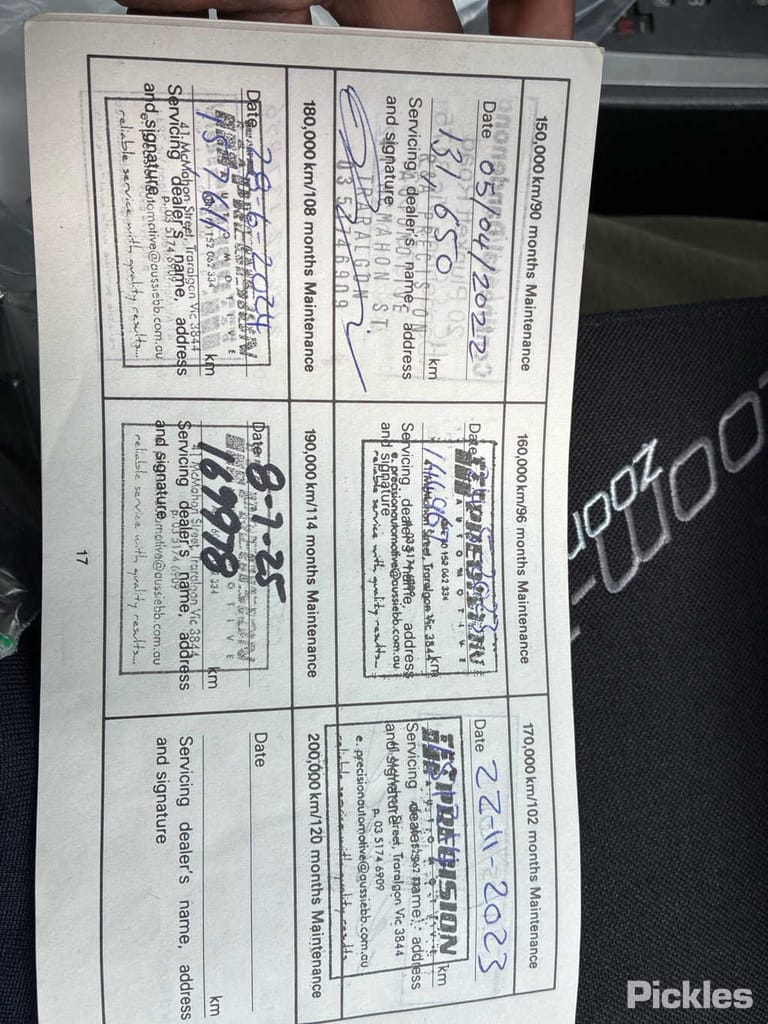 150,000 km/90 months Maintenance
Date 05/04/2022
131650 km
Servicing dealer's name, address
and signature
R&A PRECISION
AUTOMOTIVE
MCMAHON ST.
TRARALGON
0351746909
160,000 km/96 months Maintenance
Date 2023
km
Servicing dealer's name, address
and signature
PRECISION
AUTOMOTIVE
152 062 334
41 McMahon Street, Traralgon Vic 3844
e. precisionautomotive@aussiebb.com.au
reliable service with quality results...
170,000 km/102 months Maintenance
Date 22-11-2023
km
Servicing dealer's name, address
and signature
PRECISION
AUTOMOTIVE
McMahon Street, Traralgon Vic 3844
p. 03 5174 6909
e. precisionautomotive@aussiebb.com.au
reliable service with quality results
180,000 km/108 months Maintenance
Date 28-6-2024
km
Servicing dealer's name, address
and signature
AUTOMOTIVE
152 062 334
41 McMahon Street, Traralgon Vic 3844
p. 03 5174 6909
automotive@aussiebb.com.au
reliable service with quality results...
190,000 km/114 months Maintenance
Date 8-7-25
169978 km
Servicing dealer's name, address
and signature
334
41 McMahon Street, Traralgon Vic 3844
p. 03 5174 6909
reliable service with quality results...
200,000 km/120 months Maintenance
Date
km
Servicing dealer's name, address
and signature
17
zoom-
Pickles